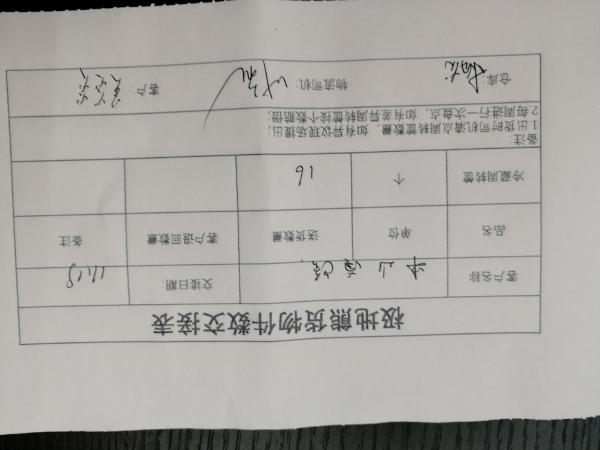 极地熊货物件数交接表
客户名称 交接日期: 11.18
品名 单位 送货数量 客户退回数量 备注
冷藏周转筐 个 16
备注:
1出货时司机点清周转筐数量,如有异议现场提出;
2每周进行一次盘点,如有差异周转筐按个数赔偿;
仓库: 物流司机: 客户: